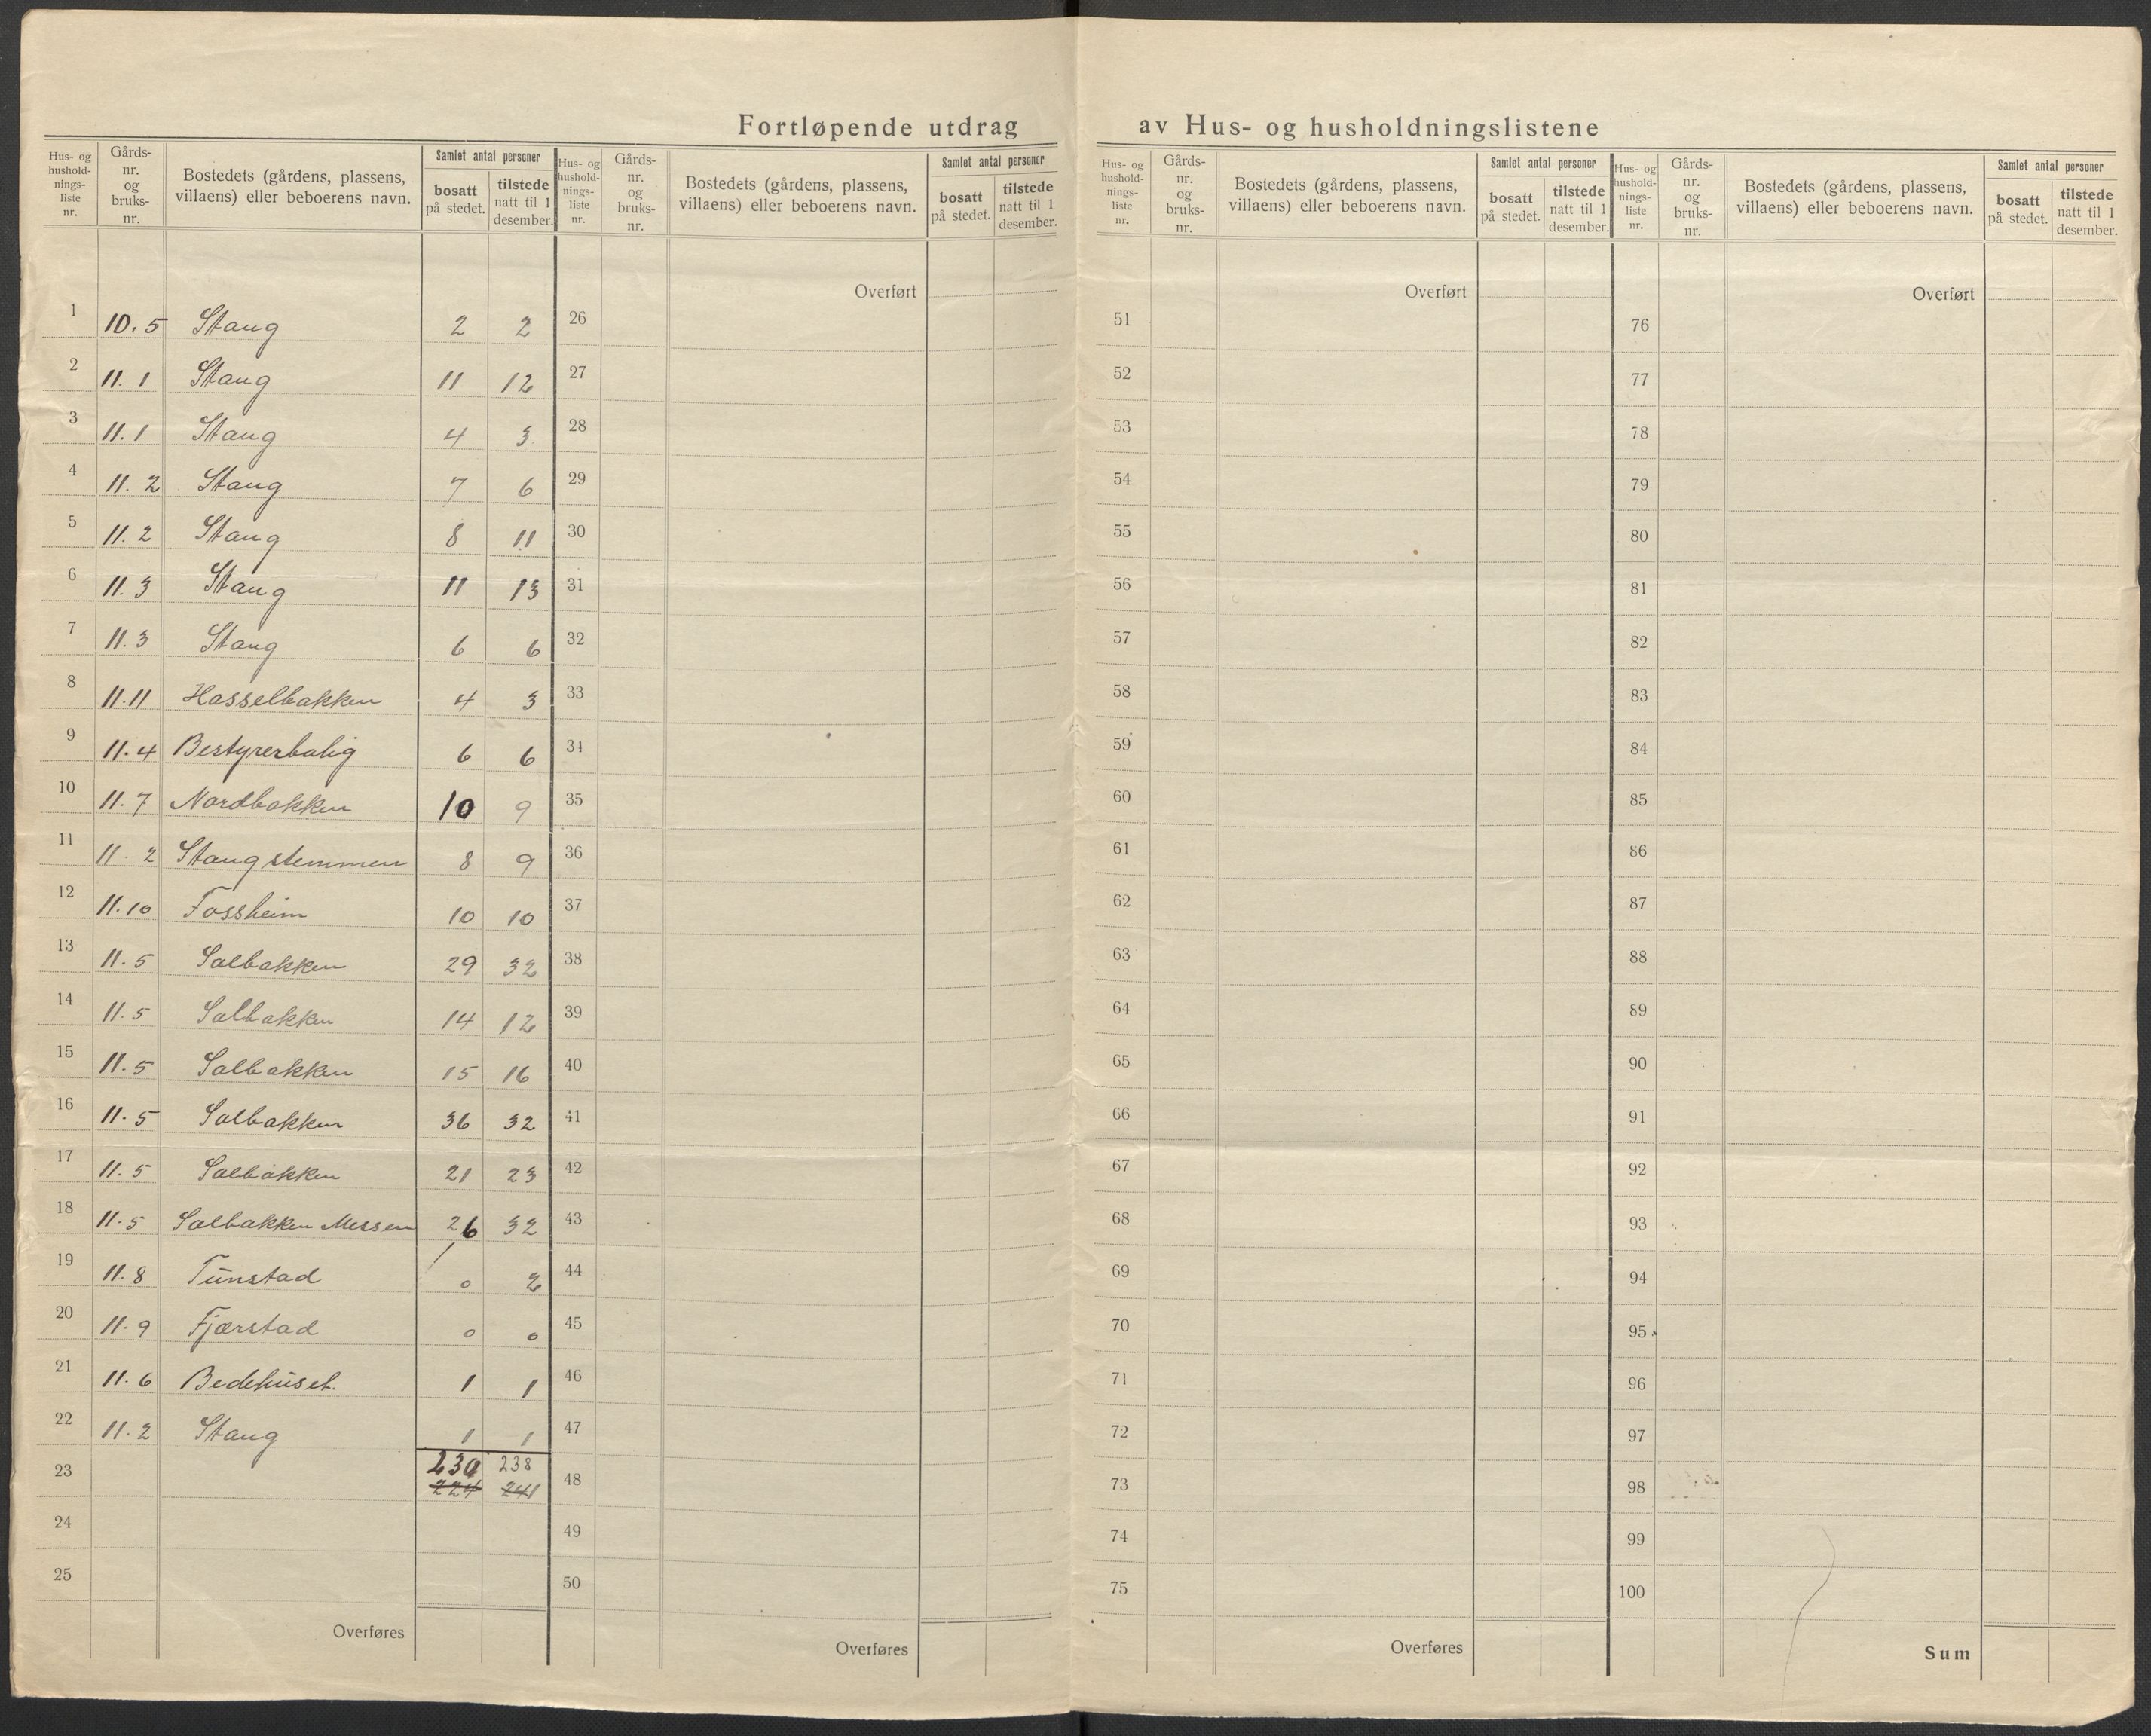 Fortløpende utdrag av Hus- og husholdningslistene
Hus- og hushold- nings- liste nr.
Gårds- nr. og bruks- nr.
Bostedets (gårdens, plassens, villaens) eller beboerens navn.
Samlet antal personer
bosatt på stedet.
tilstede natt til 1 desember.
1 10.5 Stang 2 2
2 11.1 Stang 11 12
3 11.1 Stang 4 3
4 11.2 Stang 7 6
5 11.2 Stang 8 11
6 11.3 Stang 11 13
7 11.3 Stang 6 6
8 11.11 Hasselbakken 4 3
9 11.4 Bestyrerbolig 6 6
10 11.7 Nordbakken 10 9
11 11.2 Stangstemmen 8 9
12 11.10 Fossheim 10 10
13 11.5 Solbakken 29 32
14 11.5 Solbakken 14 12
15 11.5 Solbakken 15 16
16 11.5 Solbakken 36 32
17 11.5 Solbakken 21 23
18 11.5 Solbakken Messen 26 32
19 11.8 Tunstad 0 2
20 11.9 Fjærstad 0 0
21 11.6 Bedehuset. 1 1
22 11.2 Stang 1 1
23 230 238
224 241
24
25
Overføres
Hus- og hushold- nings- liste nr.
Gårds- nr. og bruks- nr.
Bostedets (gårdens, plassens, villaens) eller beboerens navn.
Samlet antal personer
bosatt på stedet.
tilstede natt til 1 desember.
Overført
26
27
28
29
30
31
32
33
34
35
36
37
38
39
40
41
42
43
44
45
46
47
48
49
50
Overføres
Hus- og hushold- nings- liste nr.
Gårds- nr. og bruks- nr.
Bostedets (gårdens, plassens, villaens) eller beboerens navn.
Samlet antal personer
bosatt på stedet.
tilstede natt til 1 desember.
Overført
51
52
53
54
55
56
57
58
59
60
61
62
63
64
65
66
67
68
69
70
71
72
73
74
75
Overføres
Hus- og hushold- nings- liste nr.
Gårds- nr. og bruks- nr.
Bostedets (gårdens, plassens, villaens) eller beboerens navn.
Samlet antal personer
bosatt på stedet.
tilstede natt til 1 desember.
Overført
76
77
78
79
80
81
82
83
84
85
86
87
88
89
90
91
92
93
94
95
96
97
98
99
100
Sum